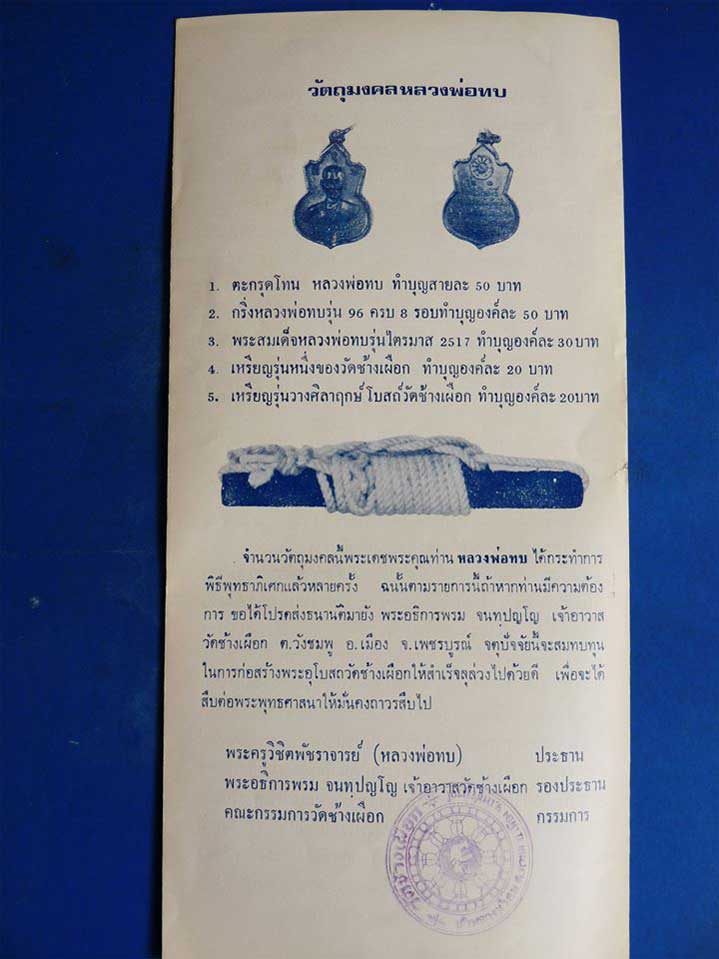 วัตถุมงคลหลวงพ่อทบ
1. ตะกรุดโทน หลวงพ่อทบ ทำบุญสายละ 50 บาท
2. กริ่งหลวงพ่อทบรุ่น 96 ครบ 8 รอบทำบุญองค์ละ 50 บาท
3. พระสมเด็จหลวงพ่อทบรุ่นไตรมาส 2517 ทำบุญองค์ละ 30บาท
4. เหรียญรุ่นหนึ่งของวัดช้างเผือก ทำบุญองค์ละ 20 บาท
5. เหรียญรุ่นวางศิลาฤกษ์ โบสถ์วัดช้างเผือก ทำบุญองค์ละ 20บาท
จำนวนวัตถุมงคลนี้พระเดชพระคุณท่าน หลวงพ่อทบ ได้กระทำการ
พิธีพุทธาภิเศกแล้วหลายครั้ง ฉนั้นตามรายการนี้ถ้าหากท่านมีความต้อง
การ ขอได้โปรดส่งธนานัติมายัง พระอธิการพรม จนฺทปญฺโญ เจ้าอาวาส
วัดช้างเผือก ต.วังชมพู อ.เมือง จ.เพชรบูรณ์ จตุปัจจัยนี้จะสมทบทุน
ในการก่อสร้างพระอุโบสถวัดช้างเผือกให้สำเร็จลุล่วงไปด้วยดี เพื่อจะได้
สืบต่อพระพุทธศาสนาให้มั่นคงถาวรสืบไป
พระครูวิชิตพัชราจารย์ (หลวงพ่อทบ) ประธาน
พระอธิการพรม จนฺทปญฺโญ เจ้าอาวาสวัดช้างเผือก รองประธาน
คณะกรรมการวัดช้างเผือก กรรมการ
วัดช้างเผือก